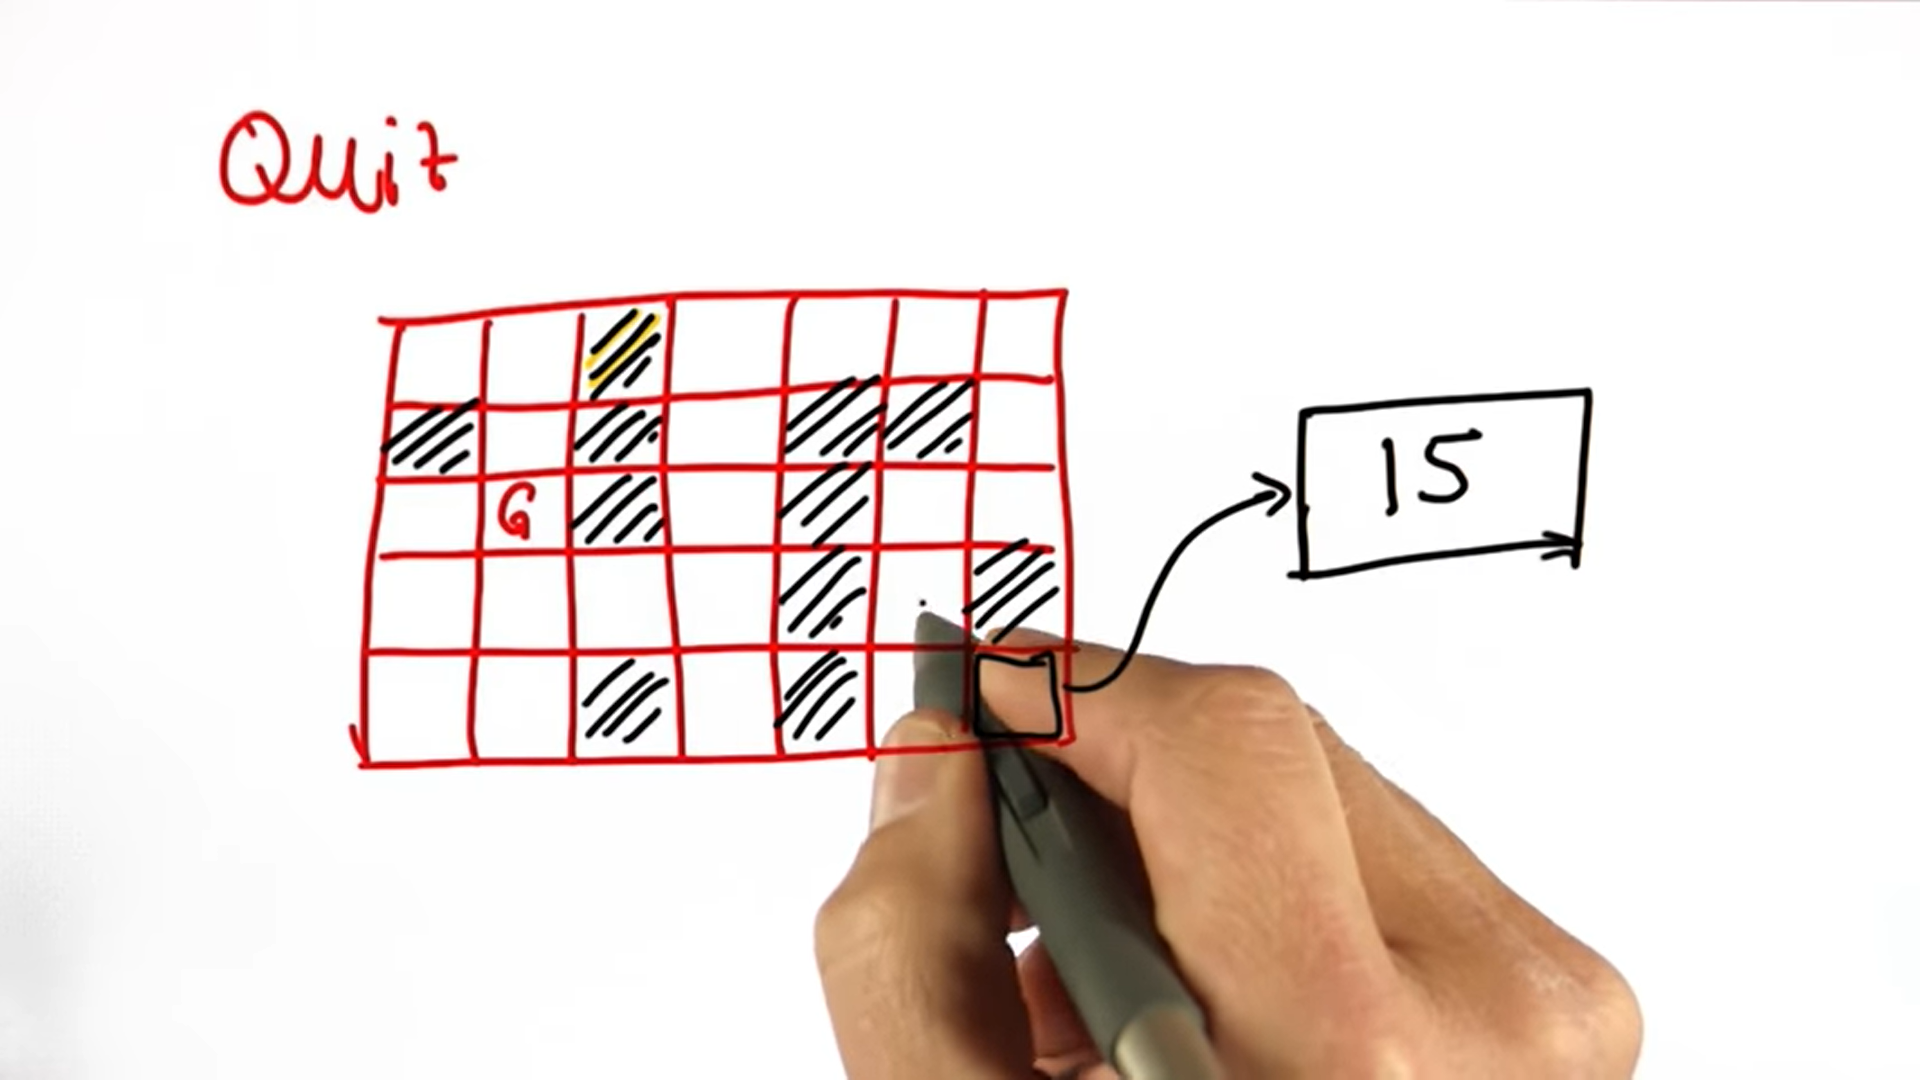 Quiz
G
15